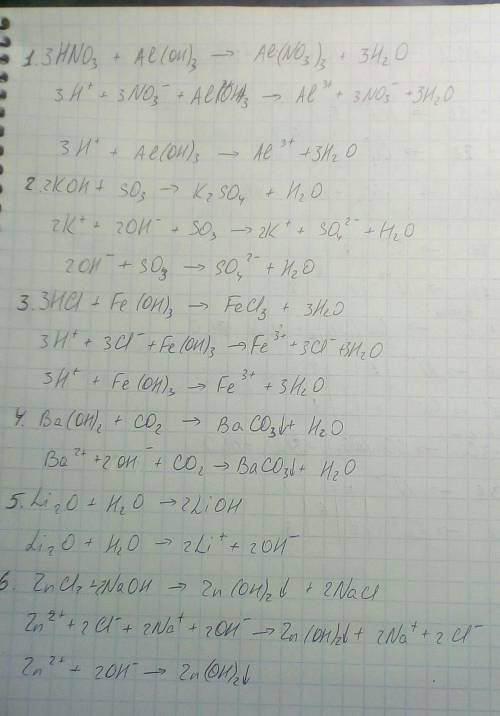 1. 3HNO₃ + Al(OH)₃ → Al(NO₃)₃ + 3H₂O
3H⁺ + 3NO₃⁻ + Al(OH)₃ → Al³⁺ + 3NO₃⁻ + 3H₂O
3H⁺ + Al(OH)₃ → Al³⁺ + 3H₂O
2. 2KOH + SO₃ → K₂SO₄ + H₂O
2K⁺ + 2OH⁻ + SO₃ → 2K⁺ + SO₄²⁻ + H₂O
2OH⁻ + SO₃ → SO₄²⁻ + H₂O
3. 3HCl + Fe(OH)₃ → FeCl₃ + 3H₂O
3H⁺ + 3Cl⁻ + Fe(OH)₃ → Fe³⁺ + 3Cl⁻ + 3H₂O
3H⁺ + Fe(OH)₃ → Fe³⁺ + 3H₂O
4. Ba(OH)₂ + CO₂ → BaCO₃↓ + H₂O
Ba²⁺ + 2OH⁻ + CO₂ → BaCO₃↓ + H₂O
5. Li₂O + H₂O → 2LiOH
Li₂O + H₂O → 2Li⁺ + 2OH⁻
6. ZnCl₂ + 2NaOH → Zn(OH)₂↓ + 2NaCl
Zn²⁺ + 2Cl⁻ + 2Na⁺ + 2OH⁻ → Zn(OH)₂↓ + 2Na⁺ + 2Cl⁻
Zn²⁺ + 2OH⁻ → Zn(OH)₂↓